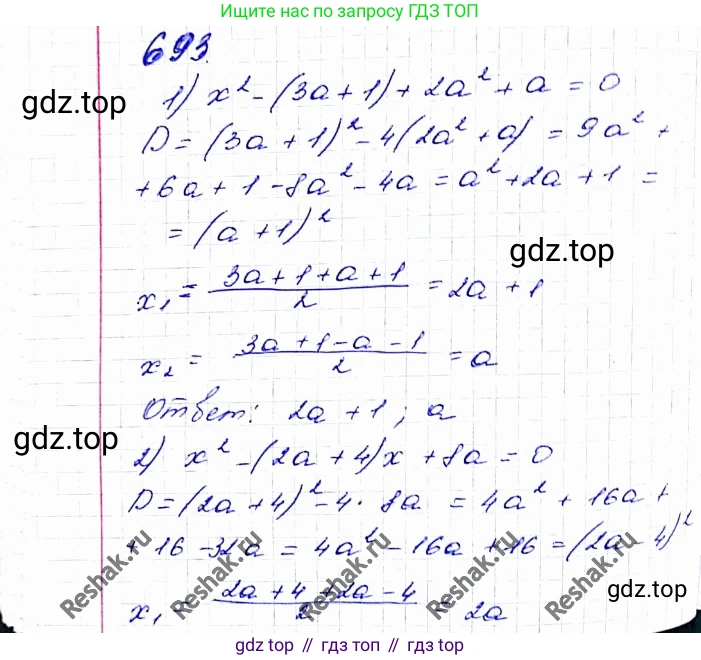 Ищите нас по запросу ГДЗ ТОП
693.
gdz.top
1) x² - (3a + 1) + 2a² + a = 0
D = (3a + 1)² - 4(2a² + a) = 9a² +
+ 6a + 1 - 8a² - 4a = a² + 2a + 1 =
= (a + 1)²
gdz.top
x₁ = (3a + 1 + a + 1)/2 = 2a + 1
x₂ = (3a + 1 - a - 1)/2 = a
Ответ: 2a + 1 ; a
gdz.top
2) x² - (2a + 4)x + 8a = 0
D = (2a + 4)² - 4 · 8a = 4a² + 16a +
+ 16 - 32a = 4a² - 16a + 16 = (2a - 4)²
Reshak.ru Reshak.ru Reshak.ru Reshak.ru
gdz.top
x₁ = (2a + 4 + 2a - 4)/2 = 2a
gdz.top // gdz.top // gdz.top // gdz.top